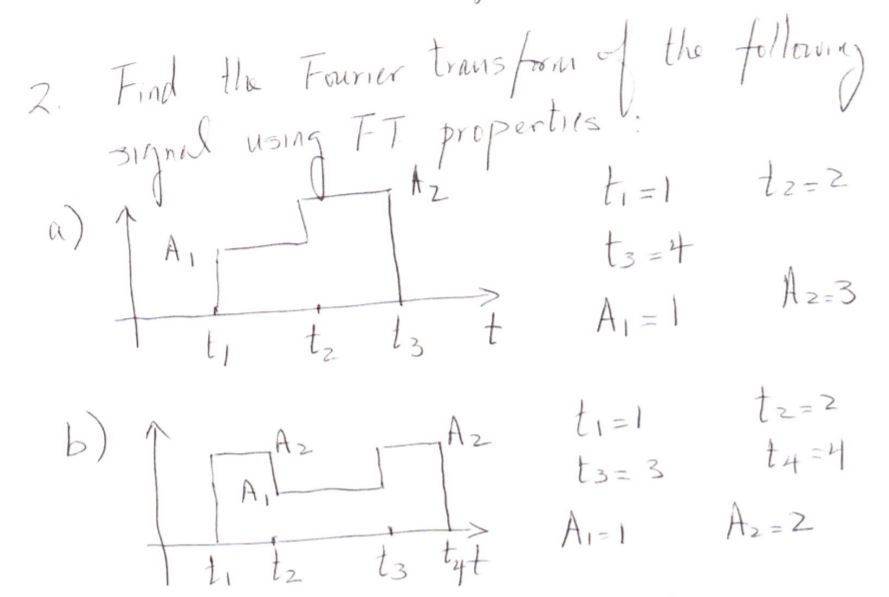 2. Find the Fourier transform of the following
signal using FT properties :
a)
A2
A1
t1
t2
t3
t
t1=1
t2=2
t3=4
A1=1
A2=3
b)
A2
A1
A2
t1
t2
t3
t4
t
t1=1
t2=2
t3=3
t4=4
A1=1
A2=2